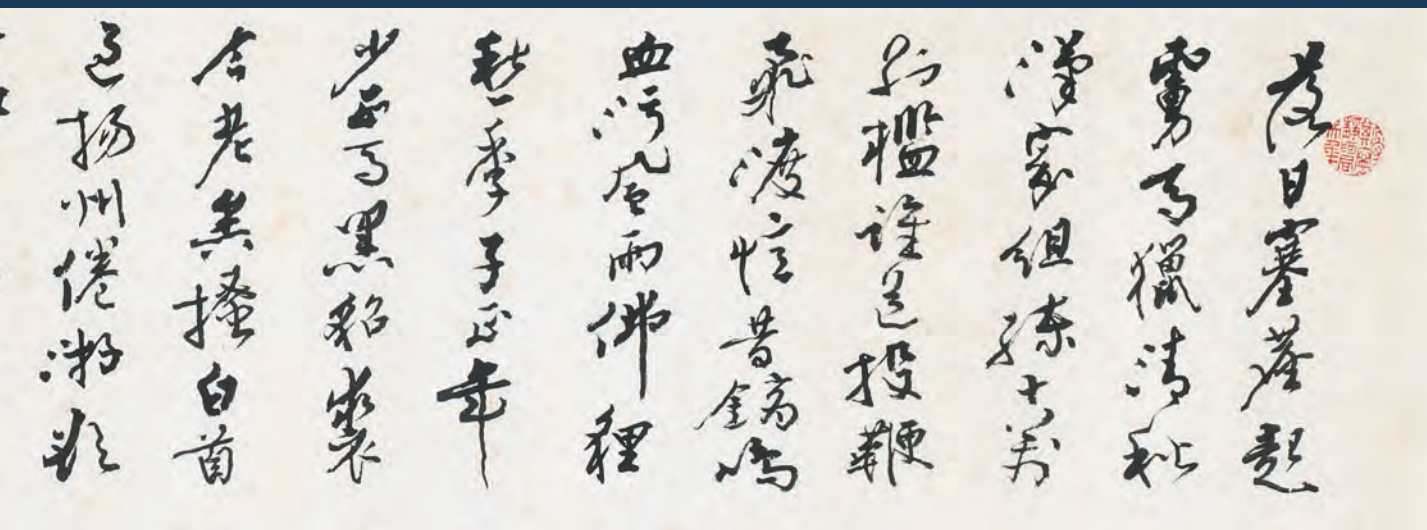 落日塞塵起
虜馬獵清秋
漢家組練十萬
列檻誰道投鞭
飛渡憶昔鏑鳴
血污風雨佛貍
愁季子正年
少匹馬黑貂裘
今老矣搔白首
過揚州倦游欲